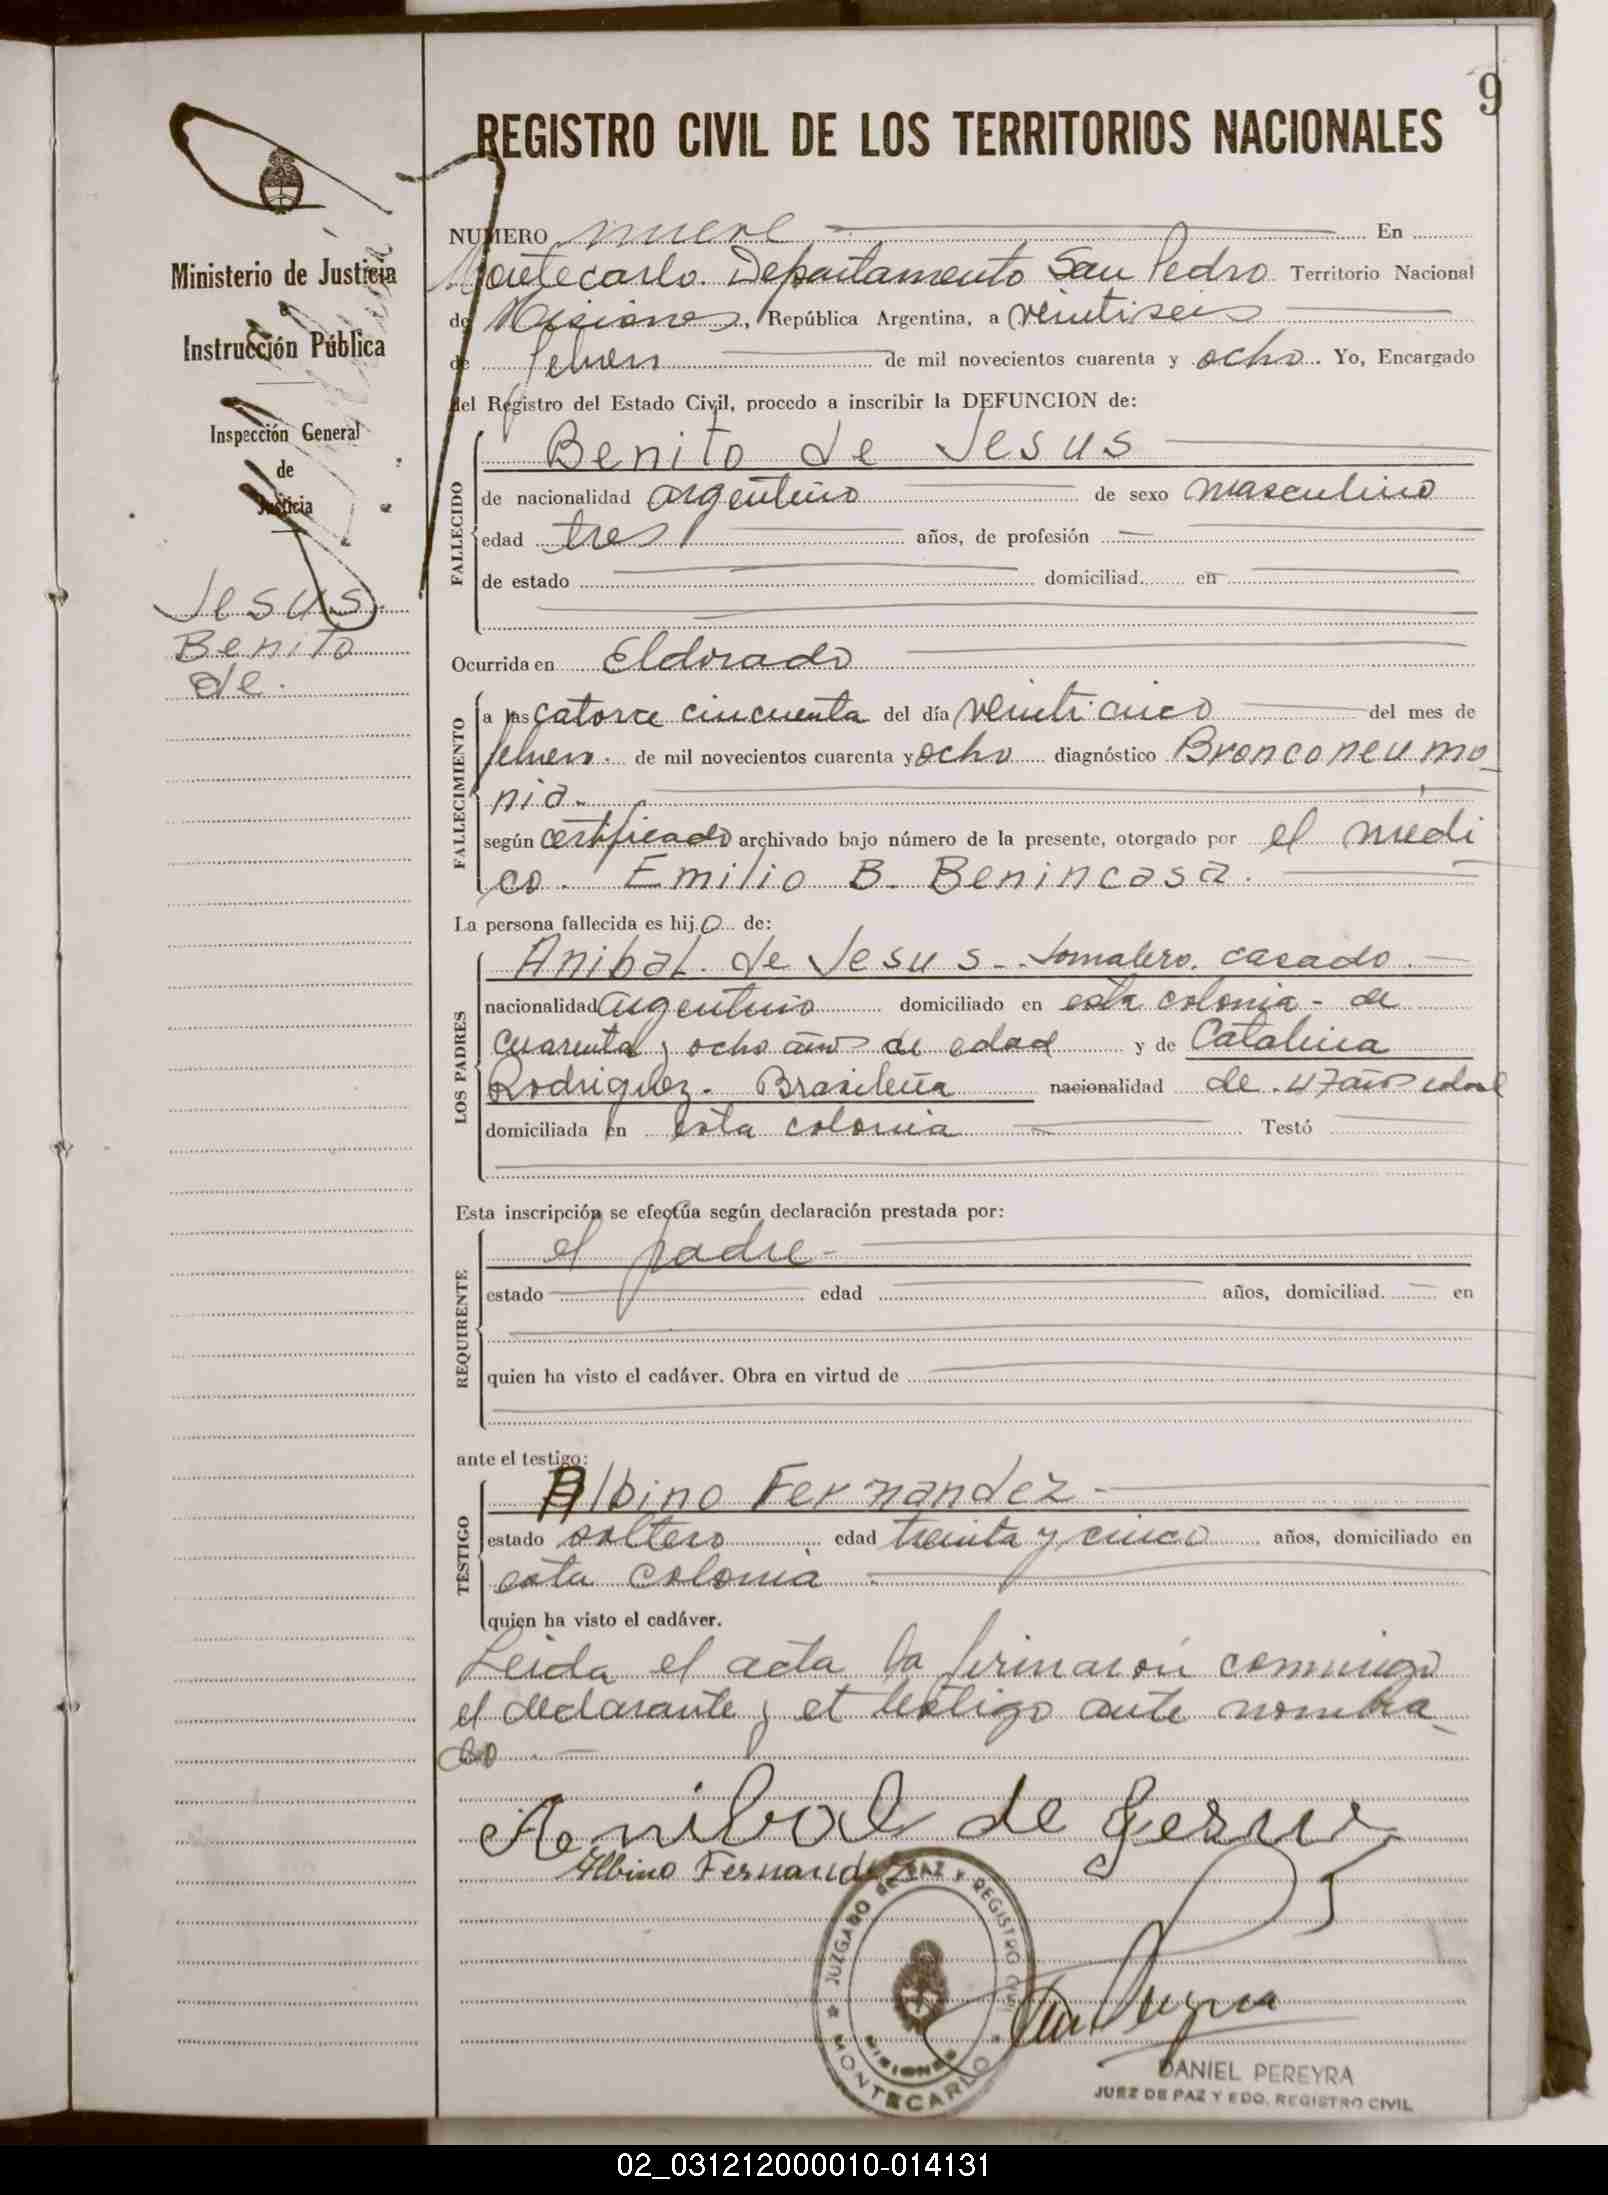 9
REGISTRO CIVIL DE LOS TERRITORIOS NACIONALES
Ministerio de Justicia
e
Instrucción Pública
Inspección General
de
Justicia
Jesus.
Benito
de.
NUMERO nueve En
Montecarlo. Departamento San Pedro. Territorio Nacional
de Misiones, República Argentina, a veintiseis
de febrero de mil novecientos cuarenta y ocho. Yo, Encargado
del Registro del Estado Civil, procedo a inscribir la DEFUNCION de:
FALLECIDO
Benito de Jesus
de nacionalidad argentino de sexo masculino
edad tres años, de profesión
de estado domiciliad en
Ocurrida en Eldorado
FALLECIMIENTO
a las catorce cincuenta del día veinticinco del mes de
febrero. de mil novecientos cuarenta y ocho diagnóstico Bronconeumo-
nia.
según certificado archivado bajo número de la presente, otorgado por el medi
co. Emilio B. Benincasa.
La persona fallecida es hijo de:
LOS PADRES
Anibal de Jesus - Jornalero. casado.
nacionalidad argentino domiciliado en esta colonia - de
cuarenta y ocho años de edad y de Catalina
Rodriguez. Brasileña nacionalidad de 47 años
domiciliada en esta colonia Testó
Esta inscripción se efectúa según declaración prestada por:
REQUIRENTE
el padre -
estado edad años, domiciliad en
quien ha visto el cadáver. Obra en virtud de
ante el testigo:
TESTIGO
Albino Fernandez -
estado soltero edad treinta y cinco años, domiciliado en
esta colonia
quien ha visto el cadáver.
Leida el acta la firmarón conmigo
el declarante y el testigo ante nombra-
do
Anibal de Jesus
Albino Fernandez
JUZGADO DE PAZ Y REGISTRO CIVIL
MISIONES
MONTECARLO
DANIEL PEREYRA
JUEZ DE PAZ Y EDO. REGISTRO CIVIL
02_031212000010-014131